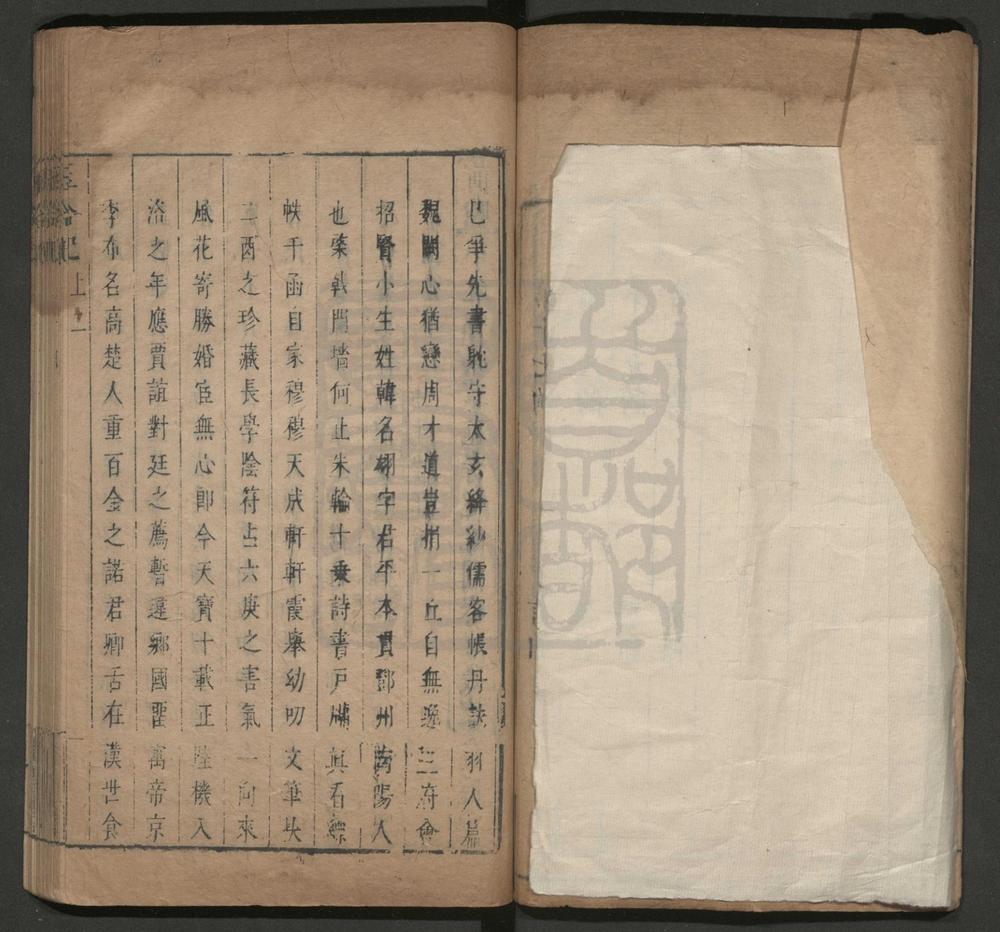 已爭先書恥守太玄絳紗儒客帳丹訣羽人篇
魏闕心猶戀周才道豈捐一丘自無逸三府會
招賢小生姓韓名翃字君平本貫鄧州南陽人
也棨戟門墻何止朱輪十乗詩書戶牖眞看縹
帙千函自家穆穆天成軒軒霞舉幼叨文筆共
二酉之珍藏長學陰符占六庚之害氣一向來
風花寄勝婚宦無心卽今天寶十載正陸機入
洛之年應賈誼對廷之薦暫違鄉國畱寓帝京
季布名高楚人重百金之諾君卿舌在漢世食
玉合記
上
一